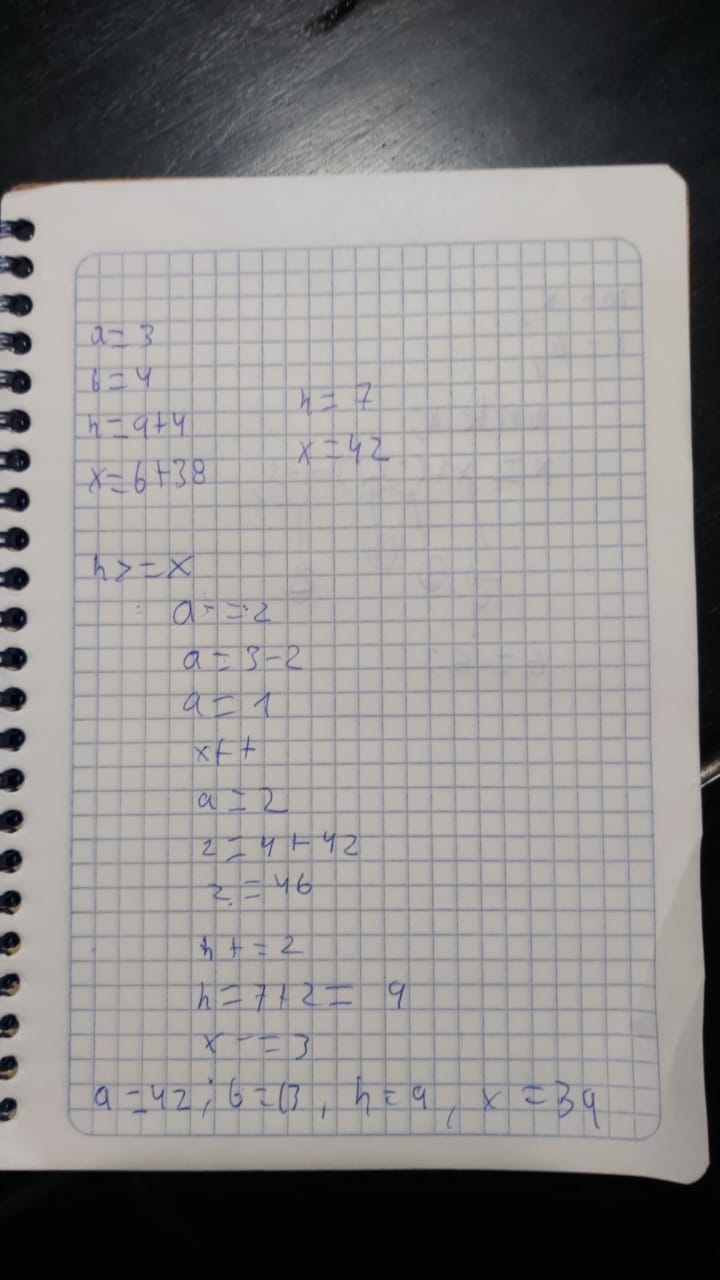 a=3
b=4
h=a+4
x=6+38
h=7
x=42
h>=x
a-=2
a=3-2
a=1
x++
a=2
z=4+42
z=46
h+=2
h=7+2= 9
x-=3
a=42; b=13, h=9, x=39